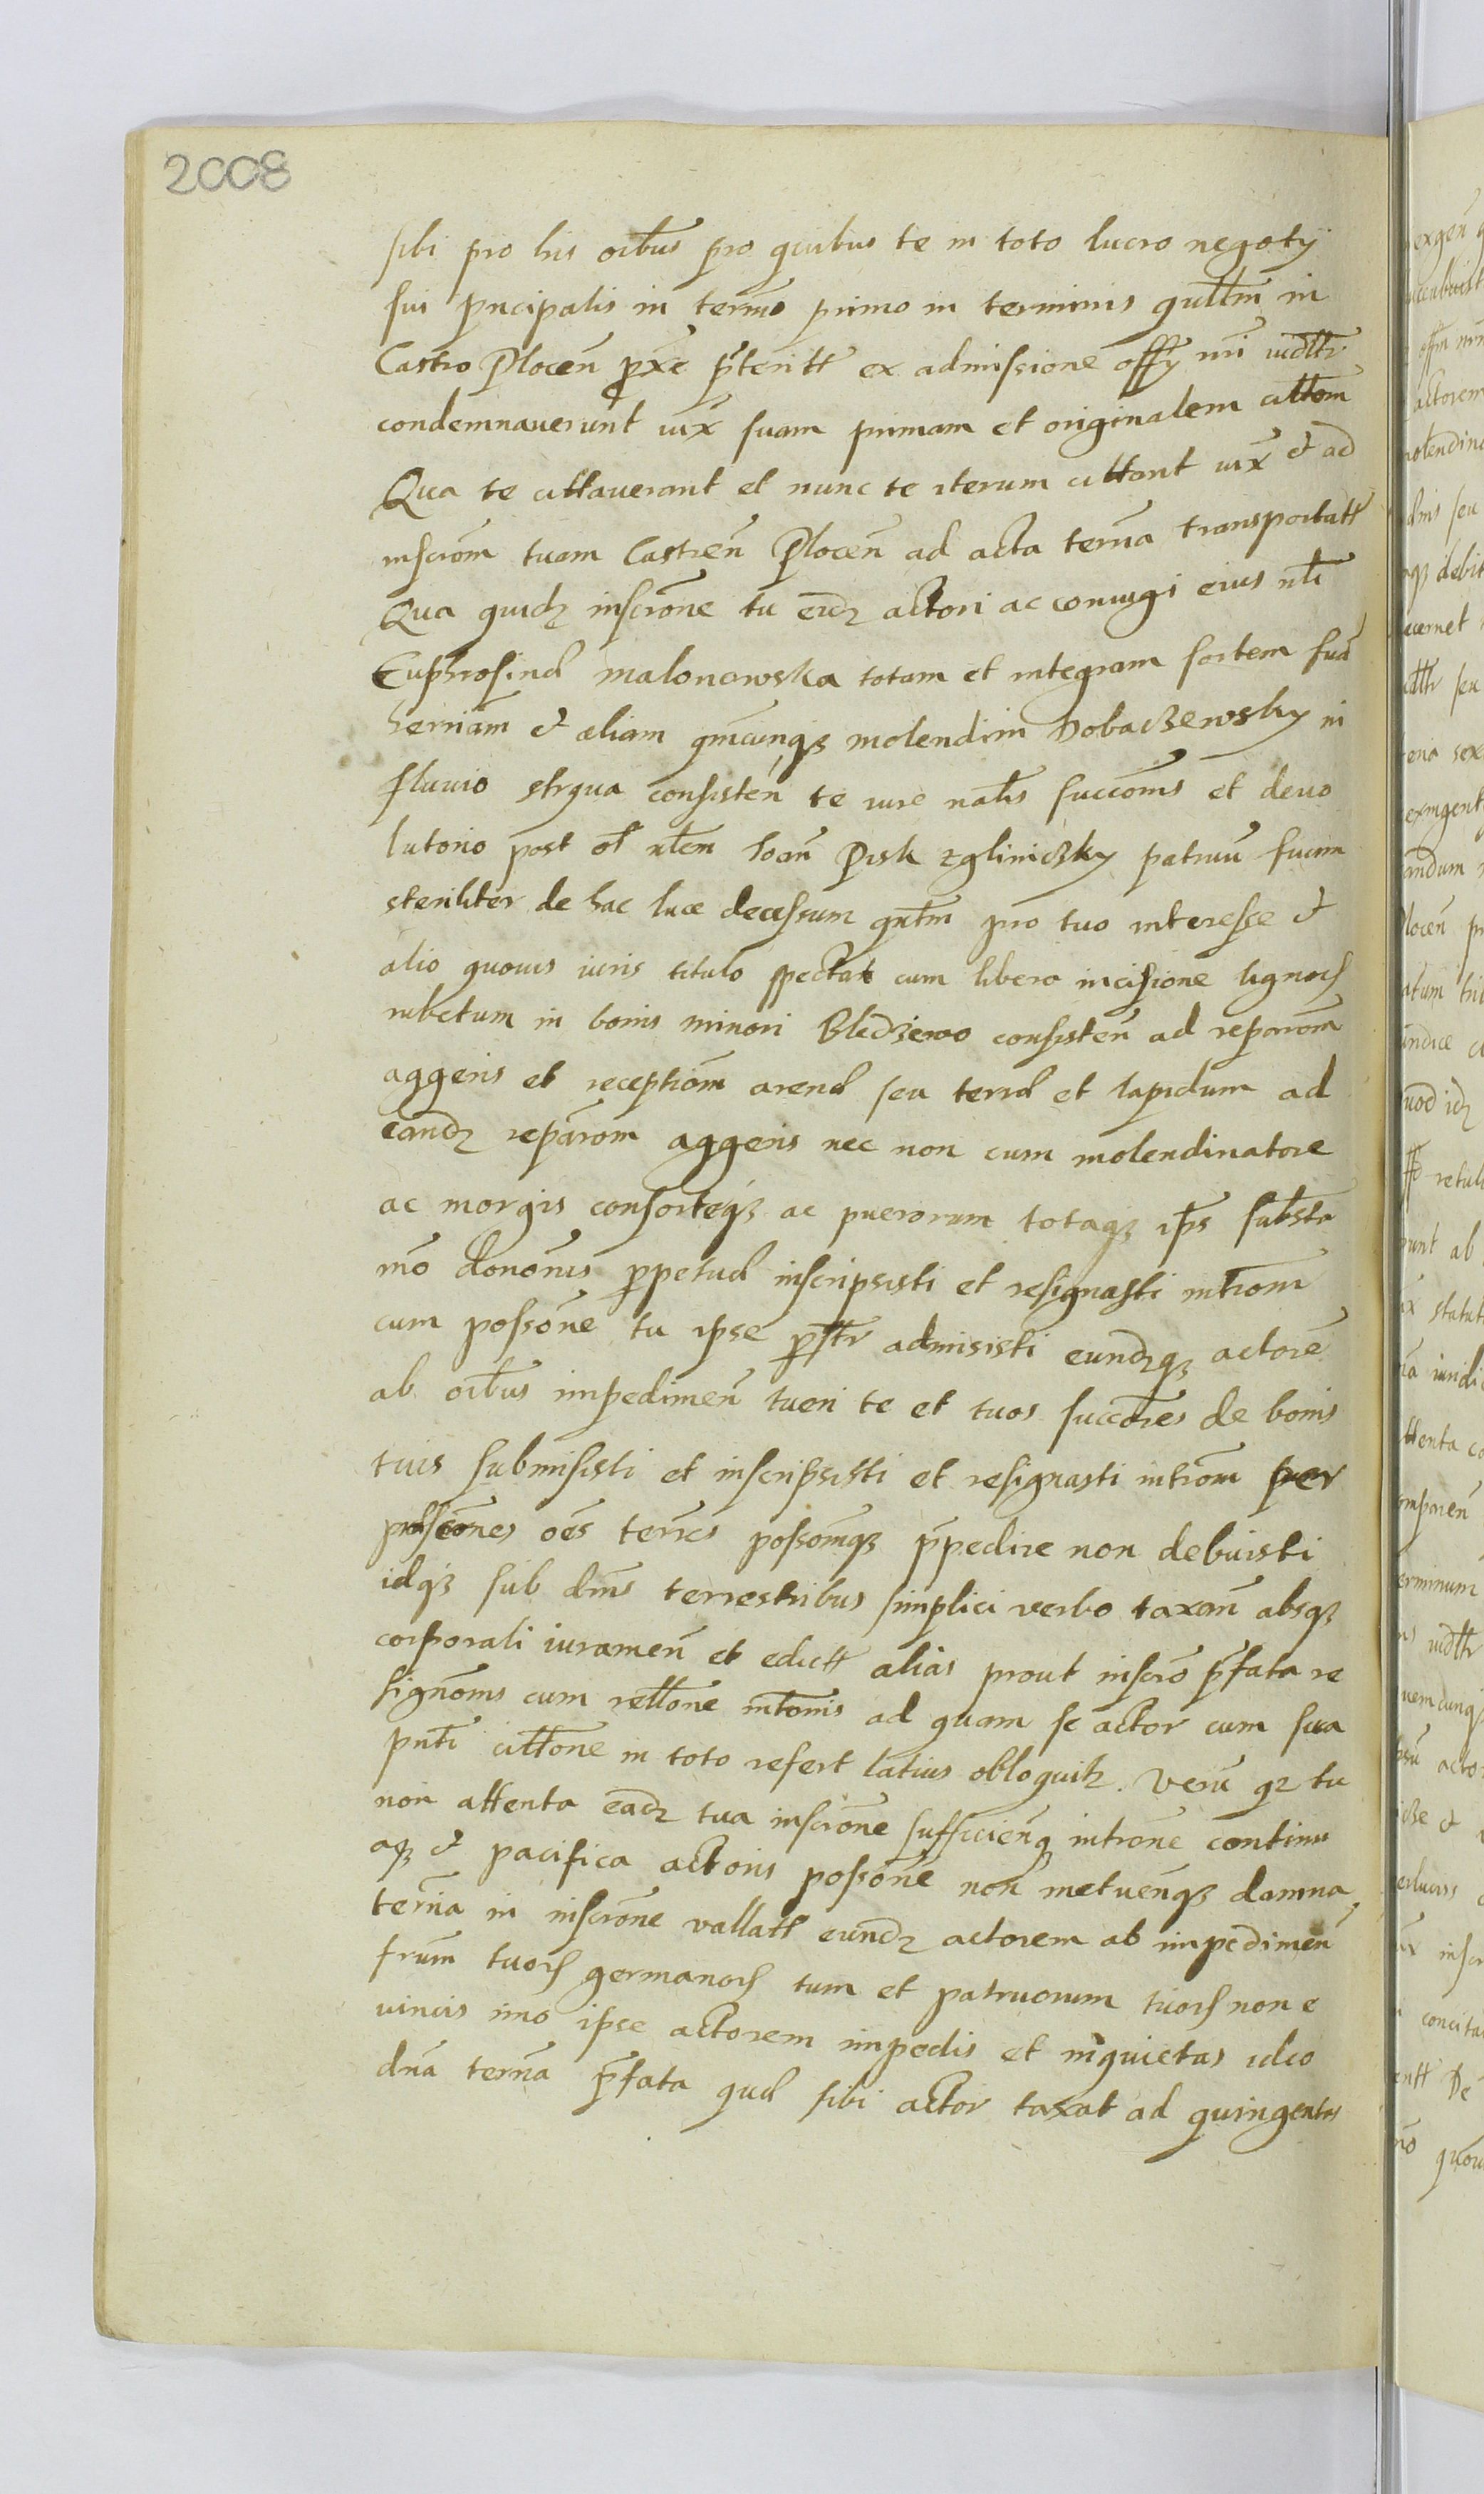 2008
sibi pro his oĩbus pro quibus te in toto lucro negotÿ
sui prīcipalis in termīo primo in terminis quĺtm in
Castro Plocen̄ prx̄e prīteritt ex admissione offÿ nr̄i iudlłr
condemnauerunt iux̄ suam primam et originalem cittōm
Qua te cittauerant et nunc te iterum cittant iux̄ et ad
inscrōm tuam Castren̄ Plocen̄ ad acta terrīa transportatt
Qua quidȝ inscrōne tu eidȝ actori ac coniugi eius nłi
Euphrosinæ malonowska totam et integram sortem suā
herriām et aliam qm̄cunqȝ molendini Dobaczewsky in
fluuio strqua consisten̄ te iure natłis succōnis et deuo
lutorio post ol̄ nłem Ioan̄ Pisk zgliniczky patruū suum
steriliter de hac luce decessum qn̄tm pro tuo interesse et
alio quouis iuris titulo spectat cum libero incisione lignorꝫ
rubetum in bonis minori Bledzewo consisten̄ ad reparōm
aggeris et receptiōm arenæ seu terræ et lapidum ad
eandȝ reparōm aggeris nec non cum molendinatore
ac morgis consorteqȝ ac puerorum totaqȝ ip̄s substa
mō donōnis perpetuæ inscripsisti et resignasti intrōm
cum possōne tu ipse pstr admisisti eundȝqȝ actorē
ab oĩbus impedimen̄ tueri te et tuos succōres de bonis
tuis submisisti et inscripsisti et resignasti intrōm per
possōnes oēs terr̄es possōmqȝ prīpedire non debuisti
idqȝ sub dm̄s terrestribus simplici verbo taxan̄ absqȝ
corporali iuramen̄ et edictt alias prout inscrō prīfata re
signōnis cum rełłone intōnis ad quam se actor cum sua
pn̄ti cittōne in toto refert latius obloquitȝ. Verū qȝ tu
non attenta eadȝ tua inscrōne sufficienqȝ intrōne continu
aqȝ et pacifica actoris possōne non metuenqȝ damna
terrīa in inscrōne vallatt eundȝ actorem ab impedimen̄
fr̄um tuorꝫ germanorꝫ tum et patruorum tuorꝫ non e
uincis imo ipse actorem impedis et inquietas ideo
dn̄a terrīa prīfata quæ sibi actor taxat ad quingentas